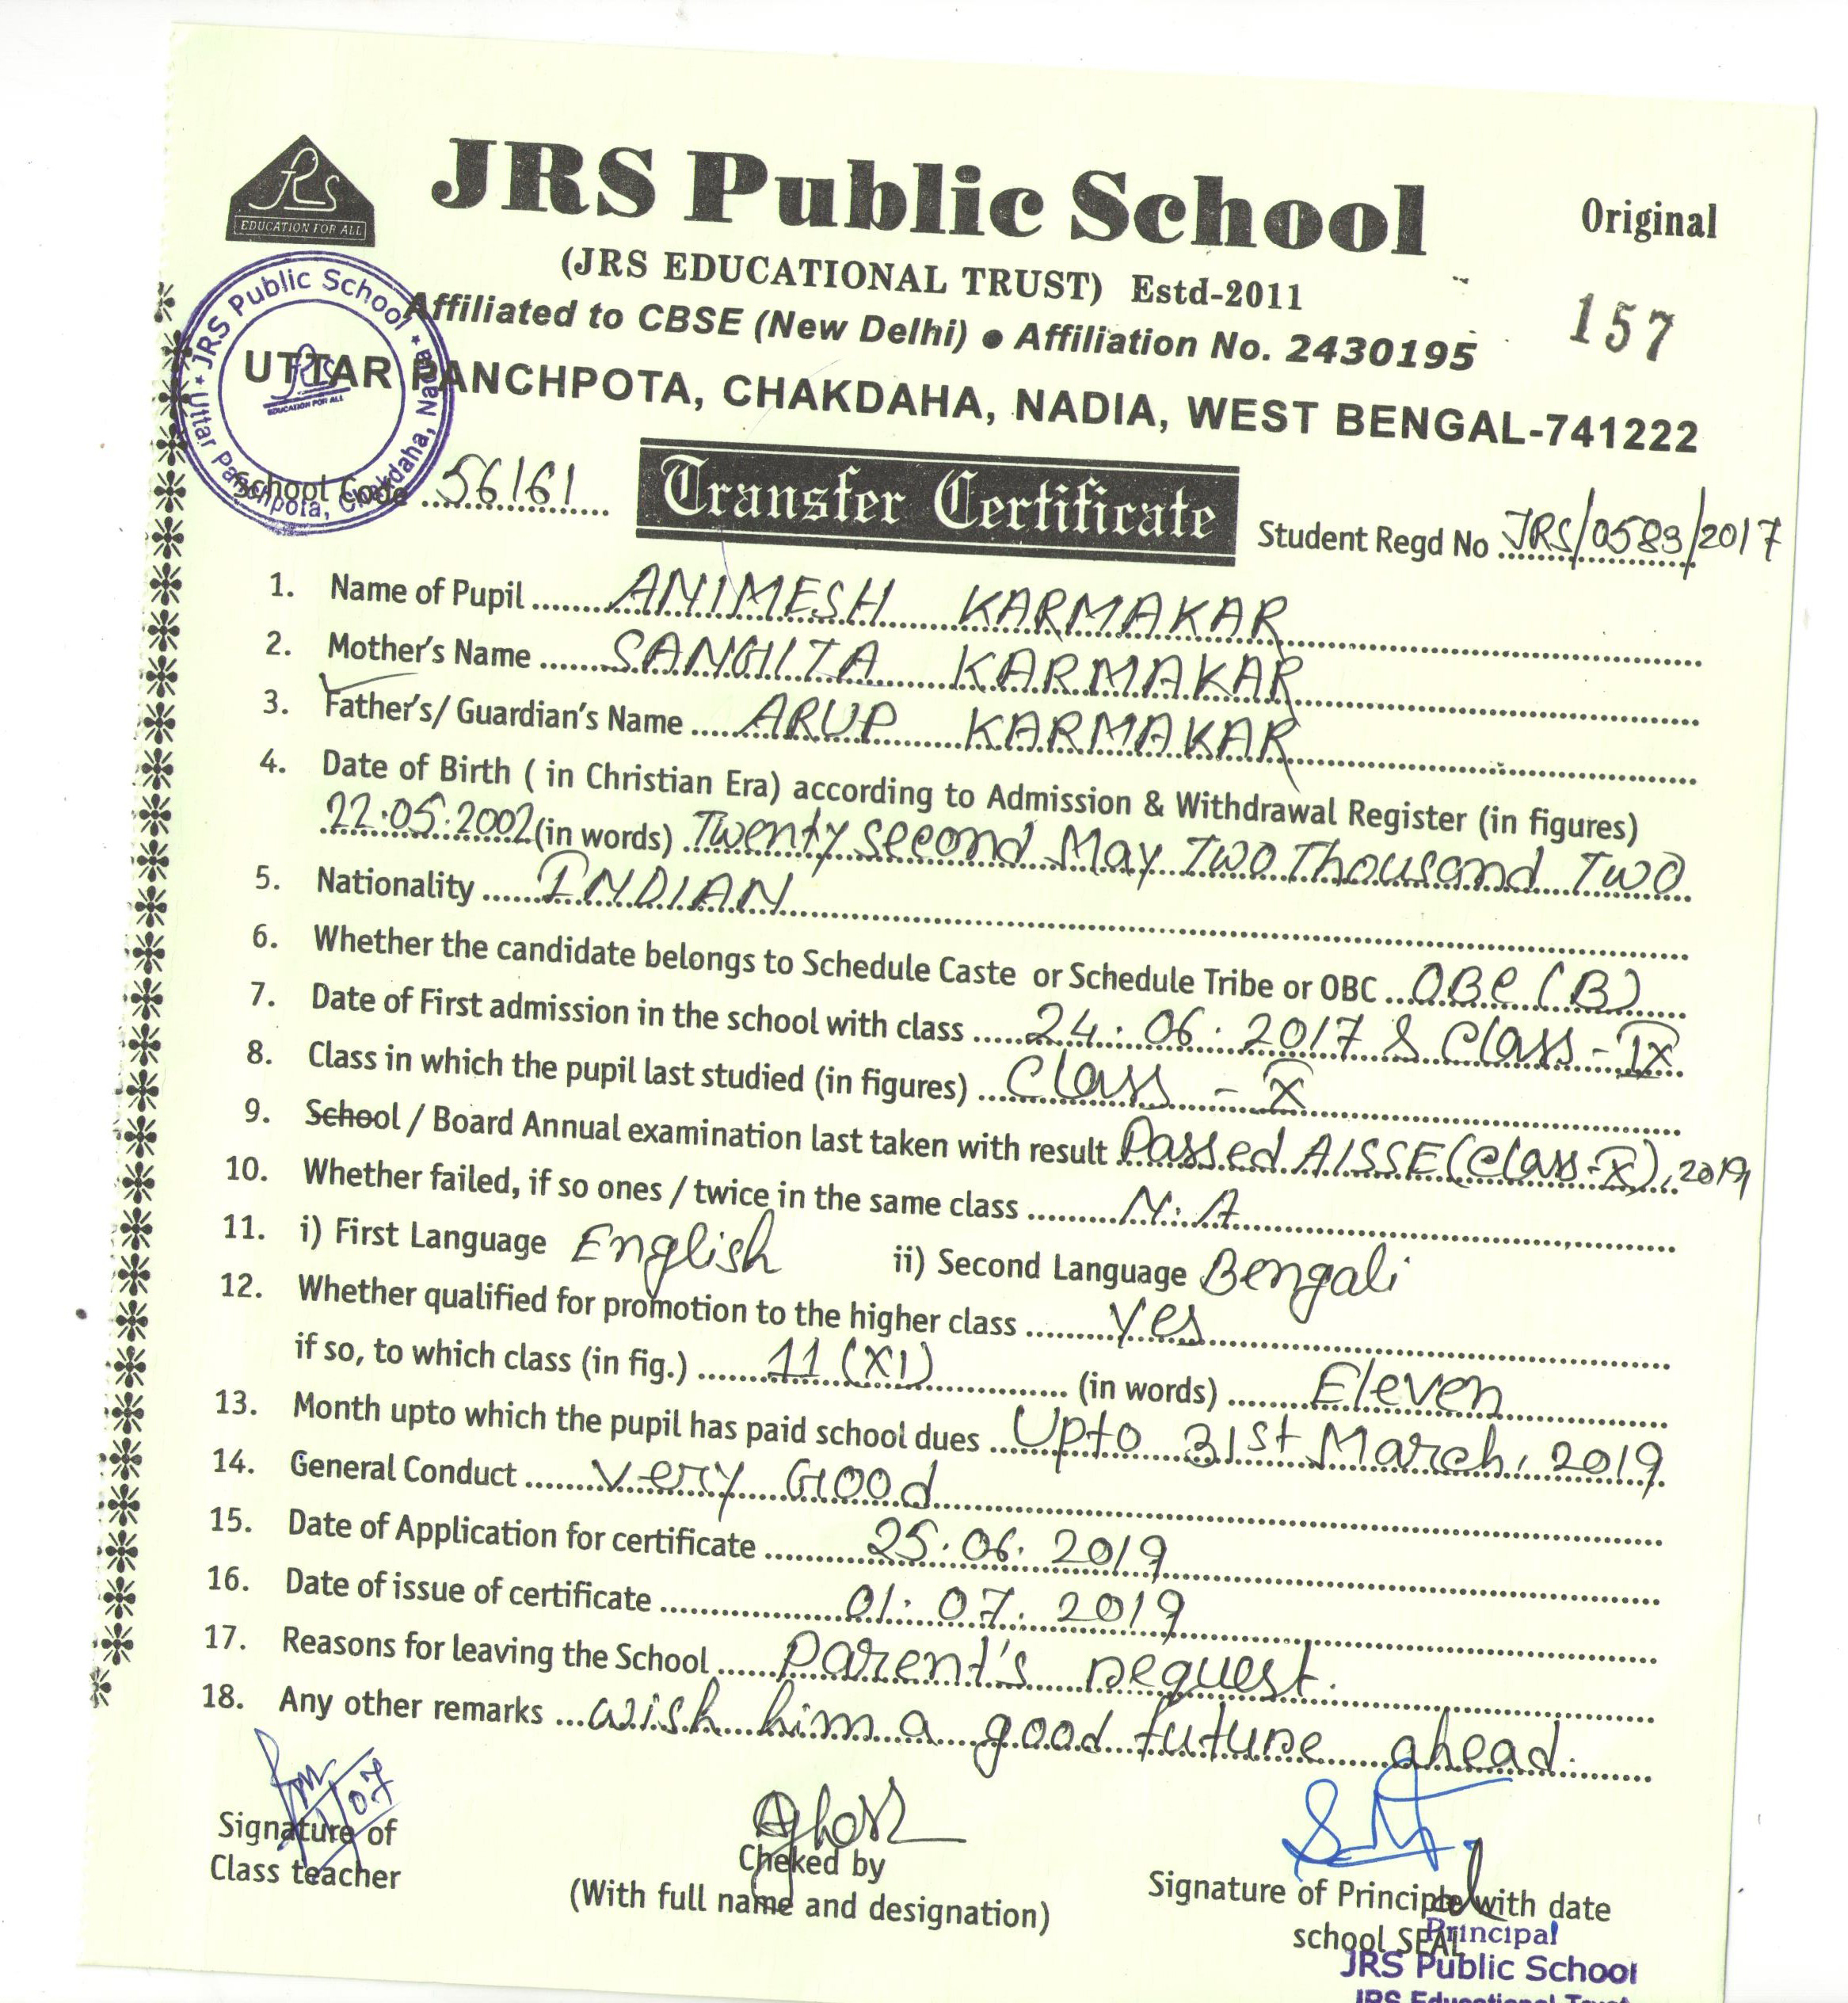 JRS
EDUCATION FOR ALL
JRS Public School
Original
(JRS EDUCATIONAL TRUST) Estd-2011
157
Affiliated to CBSE (New Delhi) ● Affiliation No. 2430195
UTTAR PANCHPOTA, CHAKDAHA, NADIA, WEST BENGAL-741222
★ JRS Public School ★ Uttar Panchpota, Chakdaha, Nadia
JRS
EDUCATION FOR ALL
School Code ..56161
Transfer Certificate
Student Regd No JRS/0589/2017
1. Name of Pupil ANIMESH KARMAKAR
2. Mother's Name SANGITA KARMAKAR
3. Father's/ Guardian's Name ARUP KARMAKAR
4. Date of Birth ( in Christian Era) according to Admission & Withdrawal Register (in figures)
22.05.2002 (in words) Twenty second May Two Thousand Two
5. Nationality INDIAN
6. Whether the candidate belongs to Schedule Caste or Schedule Tribe or OBC OBC (B)
7. Date of First admission in the school with class 24.06.2017 & Class-IX
8. Class in which the pupil last studied (in figures) Class - X
9. School / Board Annual examination last taken with result Passed AISSE (Class-X), 2019
10. Whether failed, if so ones / twice in the same class N.A
11. i) First Language English ii) Second Language Bengali
12. Whether qualified for promotion to the higher class Yes
if so, to which class (in fig.) 11 (XI) (in words) Eleven
13. Month upto which the pupil has paid school dues Upto 31st March, 2019
14. General Conduct Very Good
15. Date of Application for certificate 25.06.2019
16. Date of issue of certificate 01.07.2019
17. Reasons for leaving the School Parent's request.
18. Any other remarks wish him a good future ahead.
Signature of
Class teacher
Cheked by
(With full name and designation)
Signature of Principle with date
school SEAL
Principal
JRS Public School
JRS Educational Trust